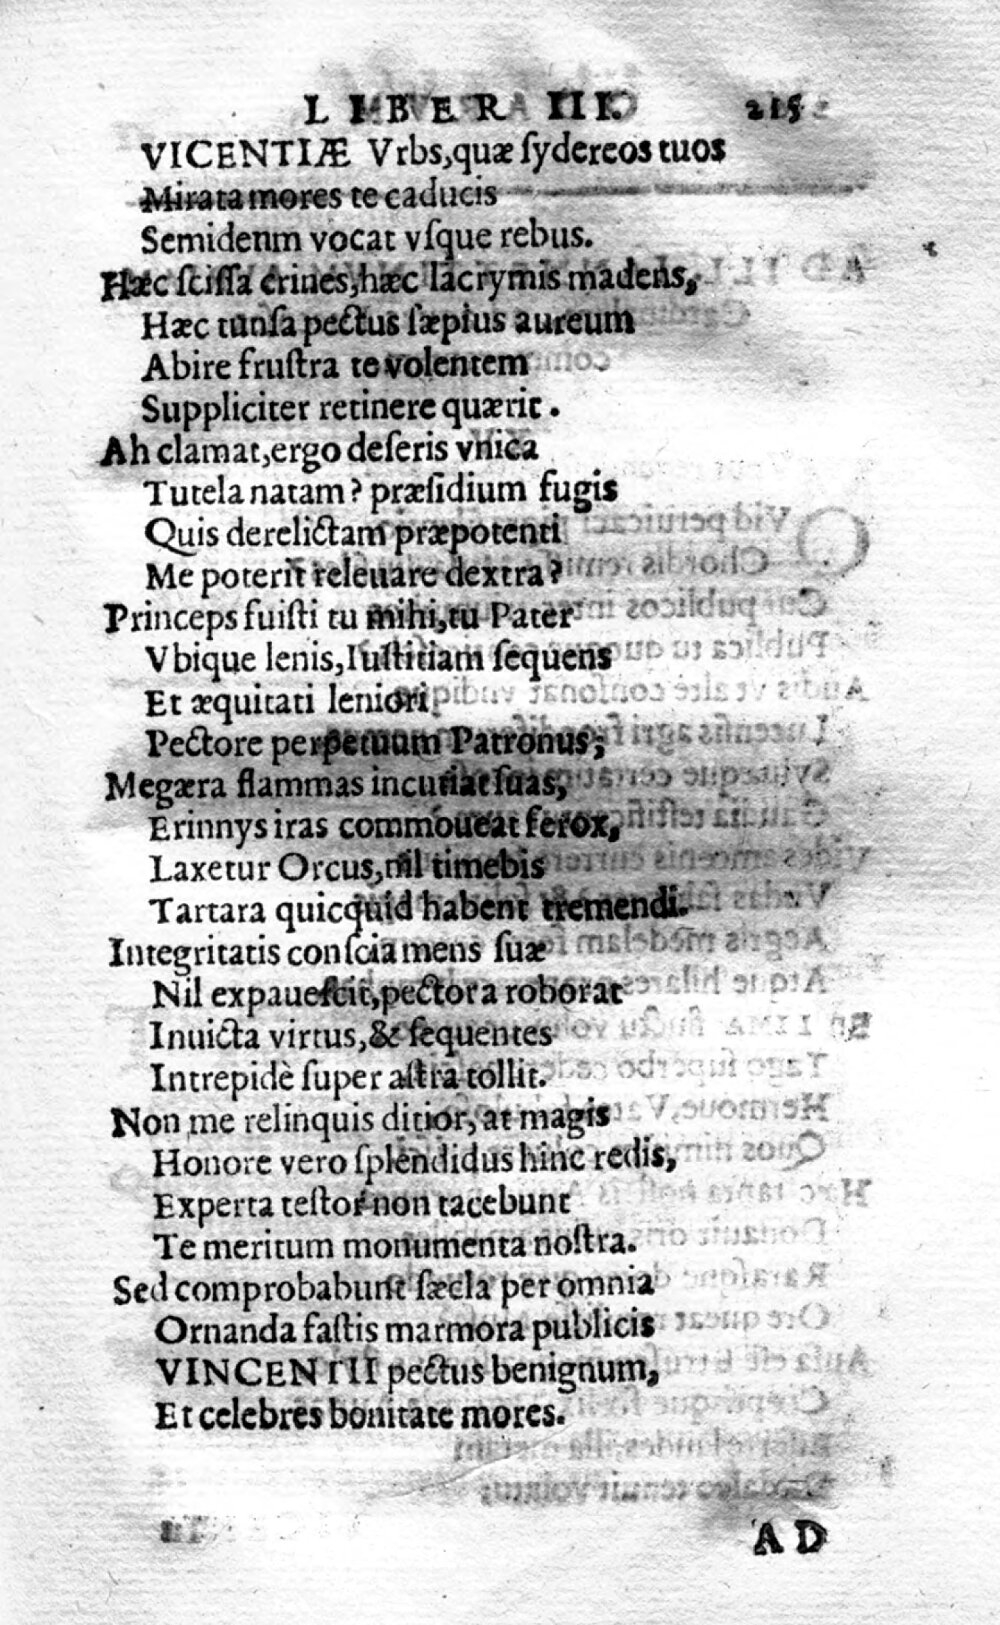 LIBER III. 215
VICENTIÆ Vrbs, quæ ſydereos tuos
Mirata mores te caducis
Semidenm vocat vſque rebus.
Hæc ſciſſa crines, hæc lacrymis madens,
Hæc tunſa pectus ſæpius aureum
Abire fruſtra te volentem
Suppliciter retinere quærit.
Ah clamat, ergo deſeris vnica
Tutela natam? præſidium fugis
Quis derelictam præpotenti
Me poterit releuare dextra?
Princeps fuiſti tu mihi, tu Pater
Vbique lenis, Iuſtitiam ſequens
Et æquitati leniori
Pectore perpetuum Patronus;
Megæra flammas incutiat ſuas,
Erinnys iras commoueat ferox,
Laxetur Orcus, nil timebis
Tartara quicquid habent tremendi.
Integritatis conſcia mens ſuæ
Nil expaueſcit, pectora roborat
Inuicta virtus, & ſequentes
Intrepidè ſuper aſtra tollit.
Non me relinquis ditior, at magis
Honore vero ſplendidus hinc redis,
Experta teſtor non tacebunt
Te meritum monumenta noſtra.
Sed comprobabunt ſæcla per omnia
Ornanda faſtis marmora publicis
VINCENTII pectus benignum,
Et celebres bonitate mores.
AD